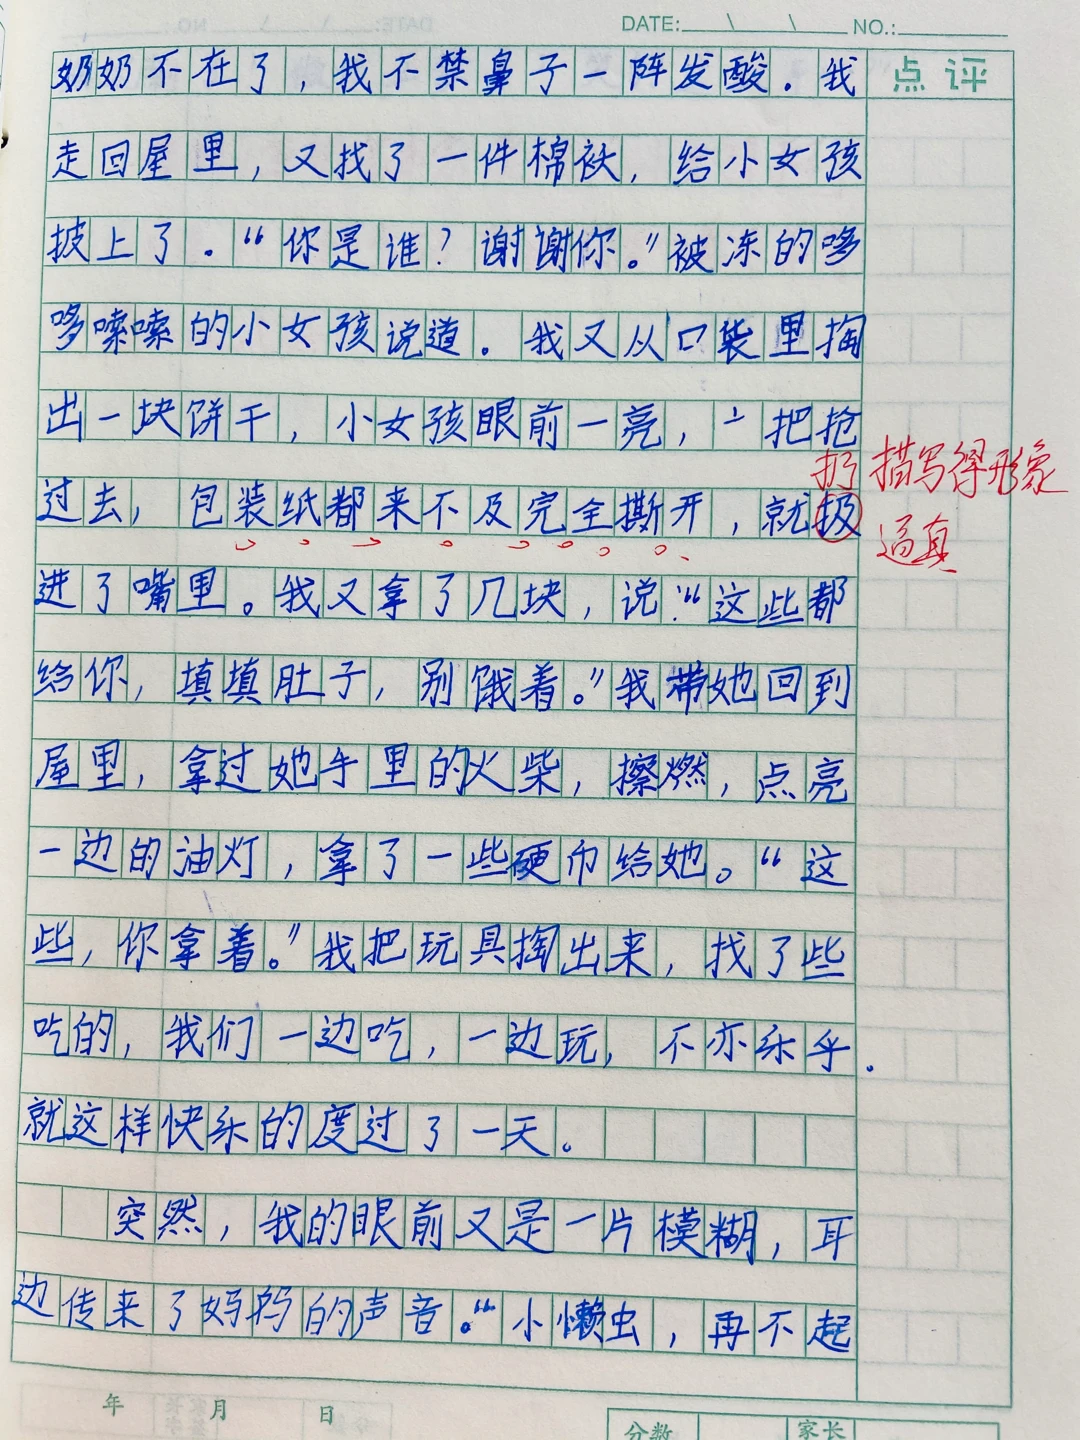 DATE: \ \ NO.:
点评
奶奶不在了，我不禁鼻子一阵发酸．我
走回屋里，又找了一件棉袄，给小女孩
披上了．“你是谁？谢谢你。”被冻的哆
哆嗦嗦的小女孩说道．我又从口袋里掏
出一块饼干，小女孩眼前一亮，一把抢
扔 描写得形象
过去，包装纸都来不及完全撕开，就扱
逼真
进了嘴里。我又拿了几块，说：“这些都
给你，填填肚子，别饿着。”我带她回到
屋里，拿过她手里的火柴，擦燃，点亮
一边的油灯，拿了一些硬币给她。“这
些，你拿着。”我把玩具掏出来，找了些
吃的，我们一边吃，一边玩，不亦乐乎．
就这样快乐的度过了一天。
突然，我的眼前又是一片模糊，耳
边传来了妈妈的声音。“小懒虫，再不起
年 月 日
分数 家长